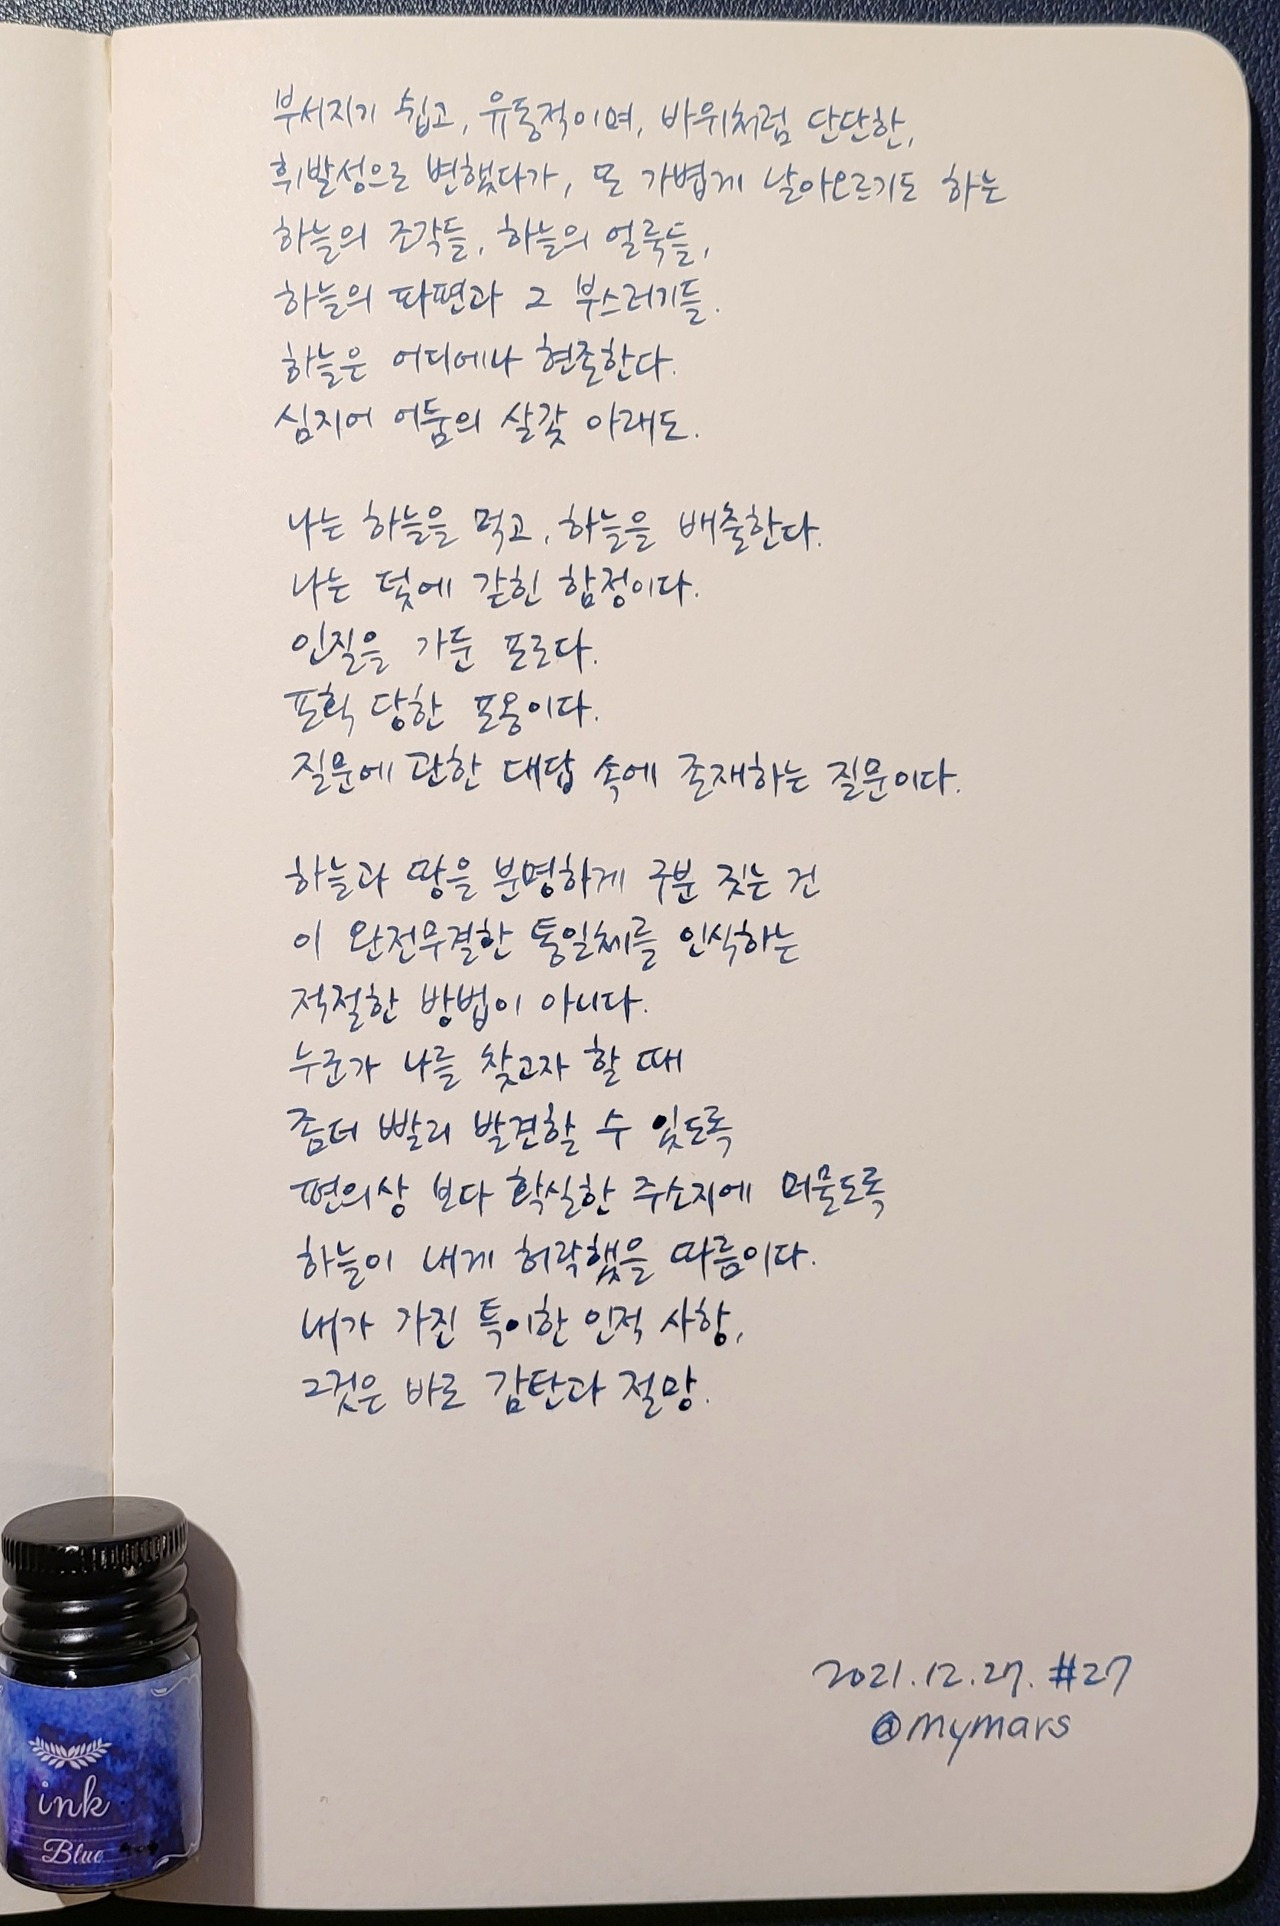 부서지기 쉽고, 유동적이며, 바위처럼 단단한,
휘발성으로 변했다가, 또 가볍게 날아오르기도 하는
하늘의 조각들, 하늘의 얼룩들,
하늘의 파편과 그 부스러기들.
하늘은 어디에나 현존한다.
심지어 어둠의 살갗 아래도.
나는 하늘을 먹고, 하늘을 배출한다.
나는 덫에 갇힌 함정이다.
인질을 가둔 포로다.
포획 당한 포옹이다.
질문에 관한 대답 속에 존재하는 질문이다.
하늘과 땅을 분명하게 구분 짓는 건
이 완전무결한 통일체를 인식하는
적절한 방법이 아니다.
누군가 나를 찾고자 할 때
좀더 빨리 발견할 수 있도록
편의상 보다 확실한 주소지에 머물도록
하늘이 내게 허락했을 따름이다.
내가 가진 특이한 인적 사항,
그것은 바로 감탄과 절망.
2021.12.27. #27
@mymars
ink
Blue